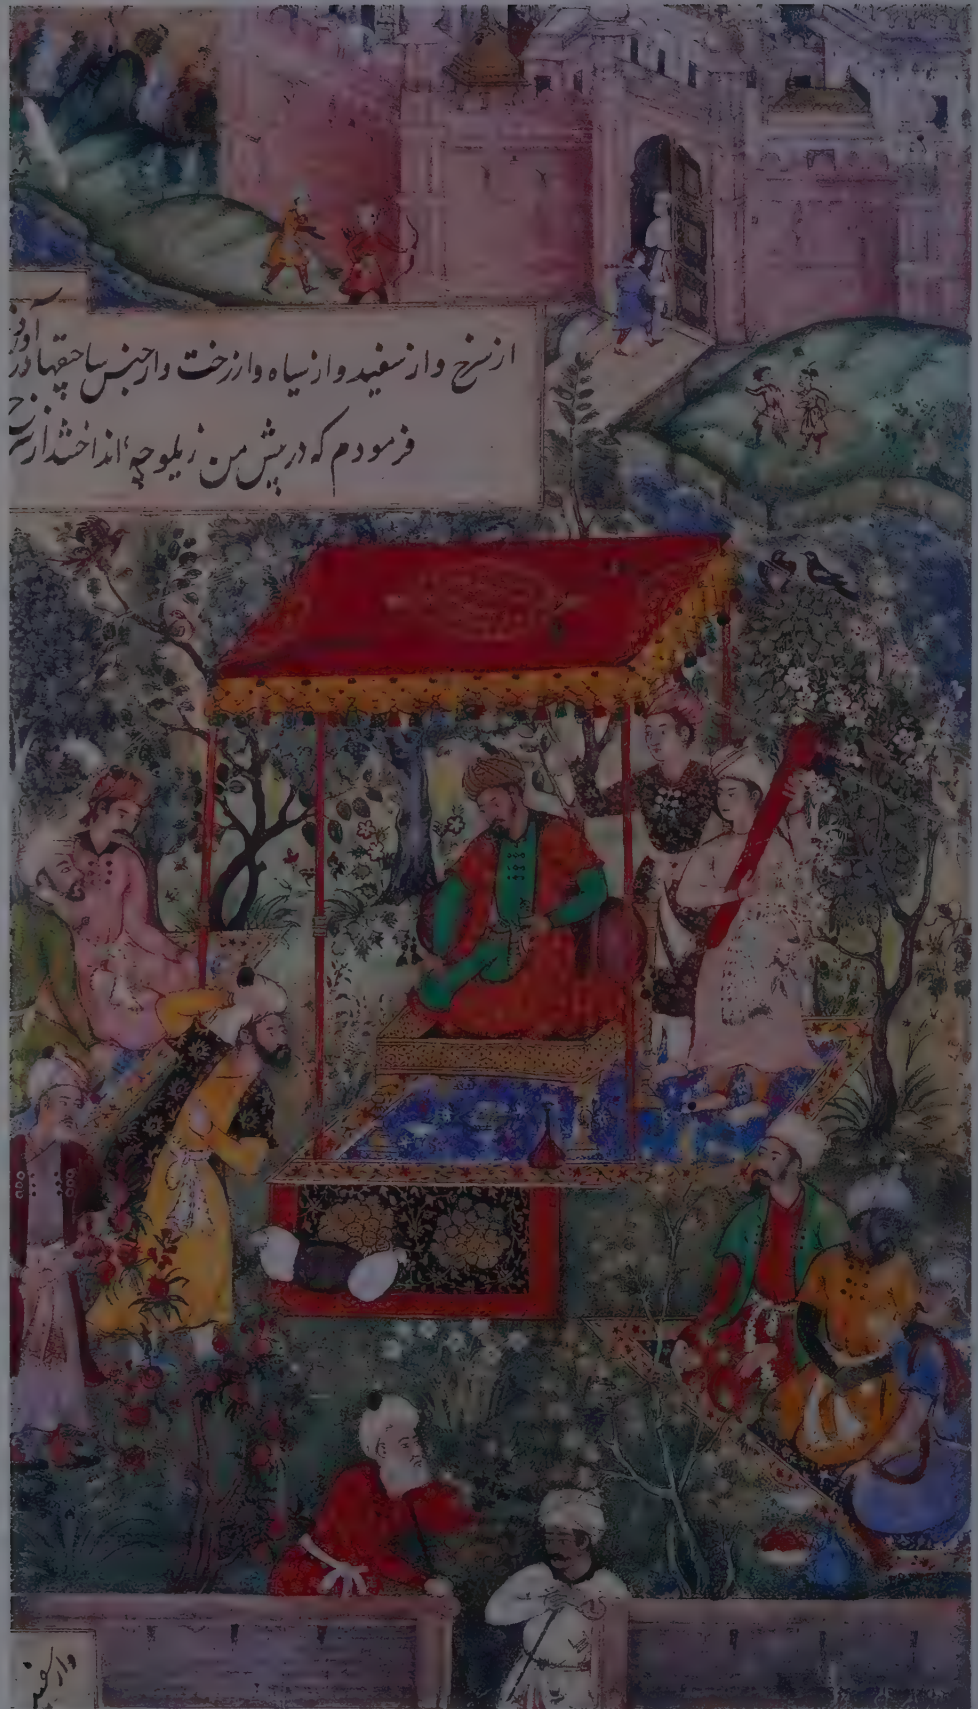 از سرخ و از سفید و از سیاه و از رخت و از جنس ساچقها
فرمودم که در پیش من زیلوچه انداختند از
و از سفید